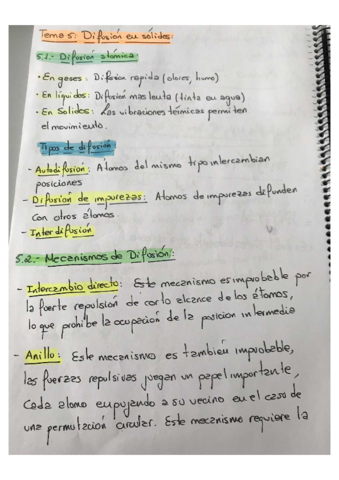 Tema 5: Difusión en sólidos:
5.1.- Difusión atómica:
· En gases: Difusion rapida (olores, humo)
· En liquidos: Difusión mas lenta (tinta en agua)
· En Solidos: Las vibraciones térmicas permiten
el movimiento.
Tipos de difusión:
- Autodifusión: Atomos del mismo tipo intercambian
posiciones
- Difusión de impurezas: Atomos de impurezas difunden
con otros átomos
- Interdifusión
5.2.- Mecanismos de Difusión:
- Intercambio directo: Este mecanismo es improbable por
la fuerte repulsión de corto alcance de los átomos,
lo que prohibe la ocupación de la posicion intermedia
- Anillo: Este mecanismo es también improbable,
las fuerzas repulsivas juegan un papel importante,
Cada atomo empujando a su vecino en el caso de
una permutación circular. Este mecanismo requiere la